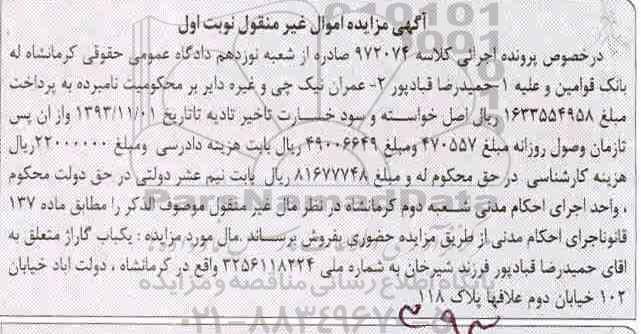 آگهی مزایده اموال غیر منقول نوبت اول
درخصوص پرونده اجرائی کلاسه ۹۷۲۰۷۴ صادره از شعبه نوزدهم دادگاه عمومی حقوقی کرمانشاه له
بانک قوامین و علیه ۱-حمیدرضا قبادپور ۲- عمران نیک چی و غیره دایر بر محکومیت نامبرده به پرداخت
مبلغ ۱۶۳۳۵۵۴۹۵۸ ریال اصل خواسته و سود خسارت تاخیر تادیه تاتاریخ ۱۳۹۳/۱۱/۰۱ واز ان پس
تازمان وصول روزانه مبلغ ۴۷۰۵۵۷ ومبلغ ۴۹۰۰۶۶۴۹ ریال بابت هزینه دادرسی ومبلغ ۲۲۰۰۰۰۰۰ریال
هزینه کارشناسی در حق محکوم له و مبلغ ۸۱۶۷۷۷۴۸ ریال بابت نیم عشر دولتی در حق دولت محکوم
، واحد اجرای احکام مدنی شعبه دوم کرمانشاه در نظر مال غیر منقول موصوف الذکر را مطابق ماده ۱۳۷
قانوناجرای احکام مدنی از طریق مزایده حضوری بفروش برساند .مال مورد مزایده : یکباب گاراژ متعلق به
اقای حمیدرضا قبادپور فرزند شیرخان به شماره ملی ۳۲۵۶۱۱۸۲۲۴ واقع در کرمانشاه ، دولت اباد خیابان
۱۰۲ خیابان دوم علافها پلاک ۱۱۸
پایگاه اطلاع رسانی مناقصه و مزایده